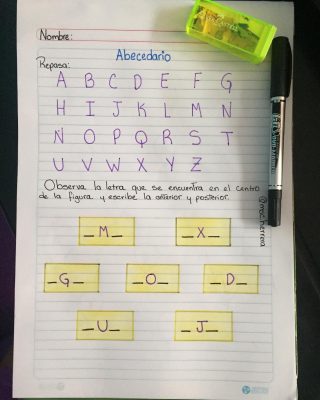 Nombre:
Abecedario
Repasa:
A B C D E F G
H I J K L M N
Ñ O P Q R S T
U V W X Y Z
Observa la letra que se encuentra en el centro
de la figura y escribe la anterior y posterior.
_M_ _X_
_G_ _O_ _D_
_U_ _J_